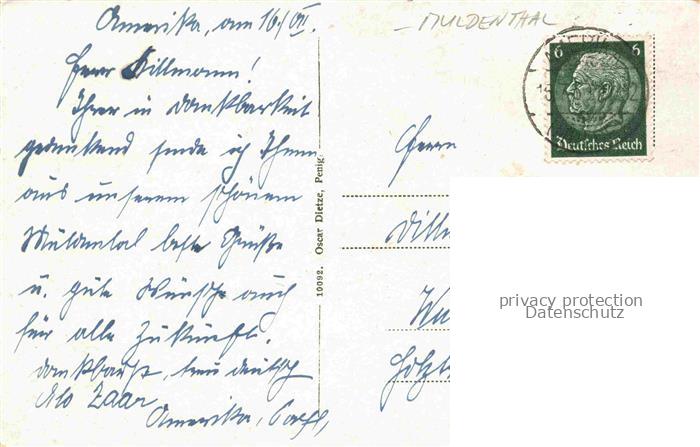 Amerika, am 16./VII.
Herr Dillmann!
Ihrer in Dankbarkeit
gedenkend sende ich Ihnen
aus unserem schönen
Muldental beste Grüße
u. gute Wünsche auch
für alle Zukunft.
Dankbarst, treu deutsch
Zaar
Amerika,
10092. Oscar Dietze, Penig.
- MULDENTHAL
6 6
Deutsches Reich
Herrn
Dill
privacy protection
Datenschutz